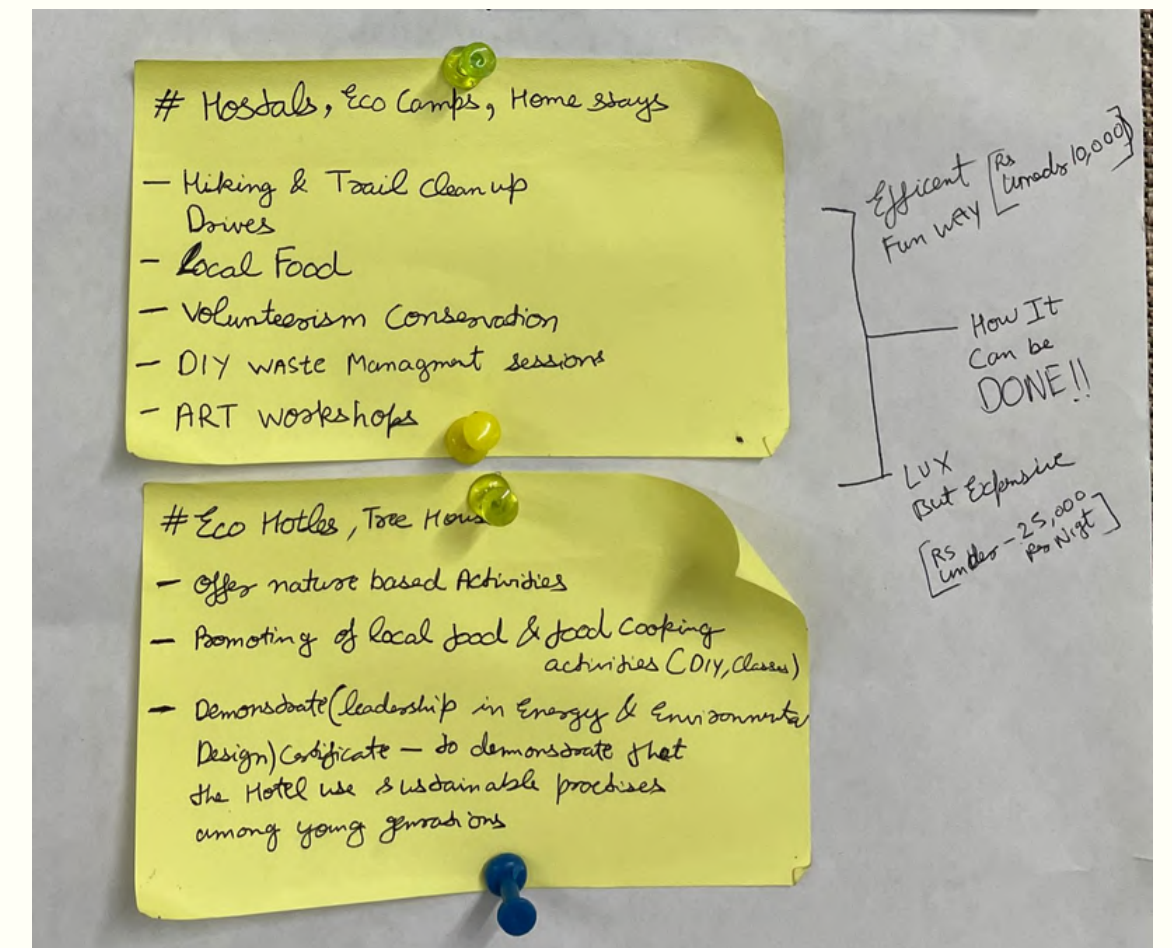 # Hostals, Eco Camps, Home stays
- Hiking & Trail clean up
Drives
- Local Food
- Volunteerism Conservation
- DIY WASte Managment sessions
- ART workshops
# Eco Hotles, Tree Hous
- Offer nature based Activities
- Promoting of local food & food cooking
activities (DIY, Classes)
- Demonstrate (leadership in Energy & Environmenta
Design) Certificate - to demonstrate that
the Hotel use sustainable practises
among young genrations
Efficent
Fun WAY
[Rs
Under 10,000]
How It
Can be
DONE!!
LUX
But Expensive
[RS
under - 25,000
Per Nigt]